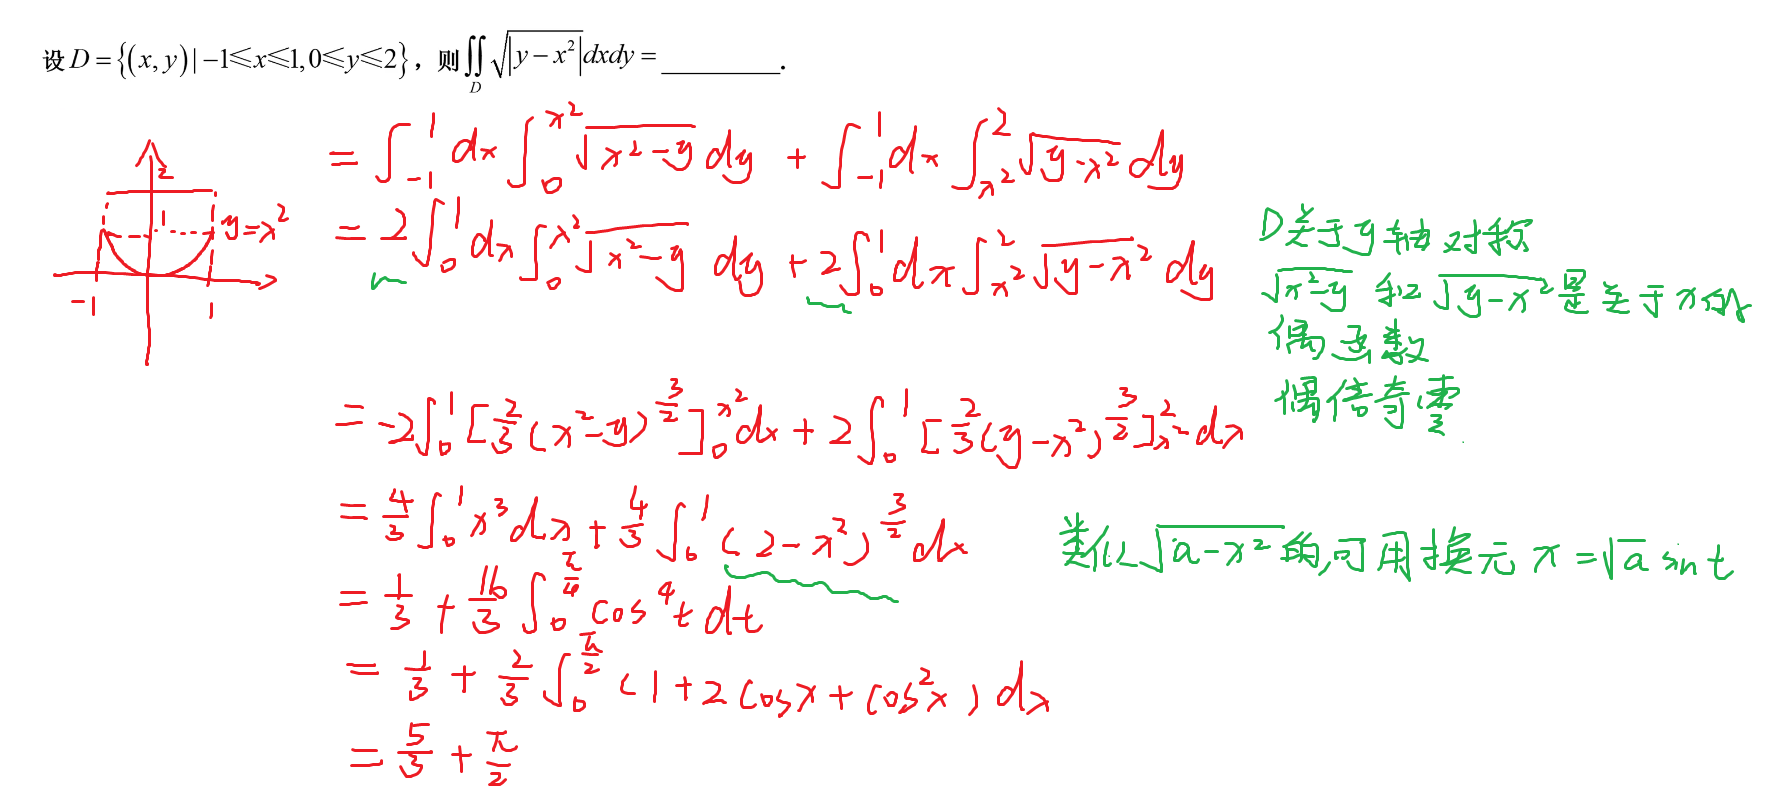 设 D = {(x, y) | −1≤x≤1, 0≤y≤2}，则∬_D √|y − x²| dxdy = ________.
= ∫_{-1}^{1} dx ∫_0^{x²} √(x²−y) dy + ∫_{-1}^{1} dx ∫_{x²}^{2} √(y−x²) dy
2
1
y=x²
-1
1
= 2∫_0^1 dx ∫_0^{x²} √(x²−y) dy + 2∫_0^1 dx ∫_{x²}^{2} √(y−x²) dy
D关于y轴对称
√(x²−y) 和 √(y−x²) 是关于x的
偶函数
偶倍奇零
= -2∫_0^1 [2/3 (x²−y)^{3/2}]_0^{x²} dx + 2∫_0^1 [2/3 (y−x²)^{3/2}]_{x²}^{2} dx
= 4/3 ∫_0^1 x³dx + 4/3 ∫_0^1 (2−x²)^{3/2} dx
类似√(a−x²)的,可用换元 x=√a sint
= 1/3 + 16/3 ∫_0^{π/4} cos⁴t dt
= 1/3 + 2/3 ∫_0^{π/2} (1+2cosx+cos²x) dx
= 5/3 + π/2